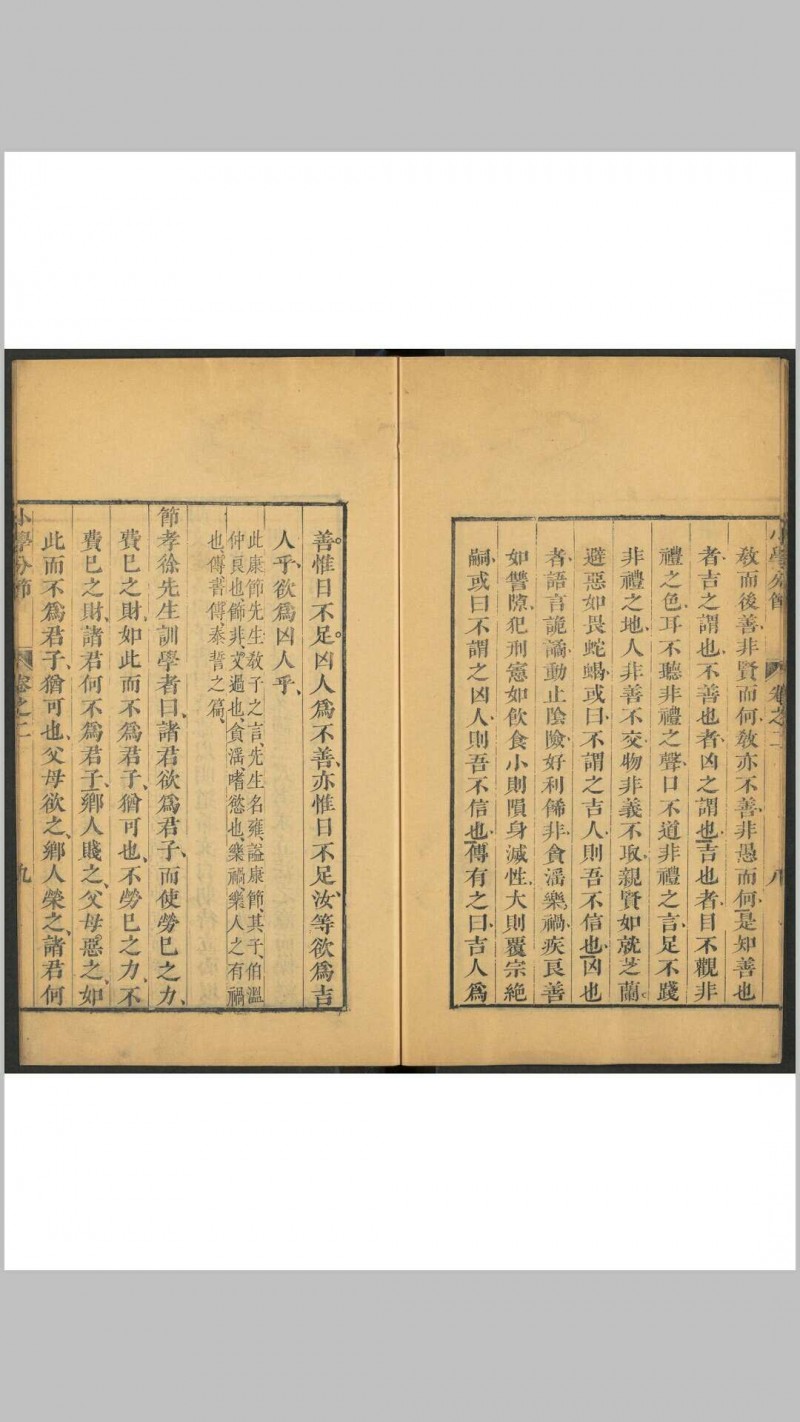 小學分節 卷之二 八
敎而後善非賢而何敎亦不善非愚而何是知善也
者吉之謂也不善也者凶之謂也吉也者目不觀非
禮之色耳不聽非禮之聲口不道非禮之言足不踐
非禮之地人非善不交物非義不取親賢如就芝蘭
避惡如畏蛇蝎或曰不謂之吉人則吾不信也凶也
者語言詭譎動止陰險好利餙非貪滛樂禍疾良善
如讐隙犯刑憲如飮食小則隕身滅性大則覆宗絶
嗣或曰不謂之凶人則吾不信也傳有之曰吉人爲
善惟日不足凶人爲不善亦惟日不足汝等欲爲吉
人乎欲爲凶人乎
此康節先生敎子之言先生名雍謚康節其子伯溫
仲良也餙非文過也貪滛嗜慾也樂禍樂人之有禍
也傳書傳泰誓之篇
節孝徐先生訓學者曰諸君欲爲君子而使勞已之力
費已之財如此而不爲君子猶可也不勞已之力不
費已之財諸君何不爲君子鄉人賤之父母惡之如
此而不爲君子猶可也父母欲之鄉人榮之諸君何
小學分節 卷之二 九